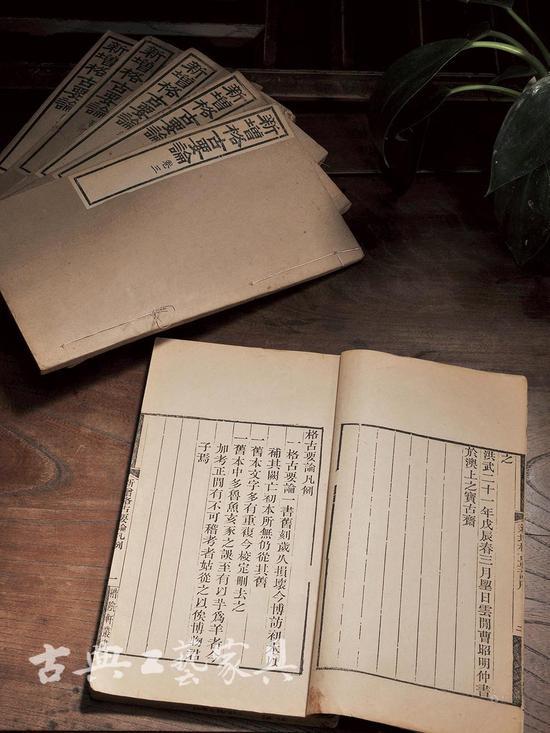 新增格古要論
新增格古要論
新增格古要論
新增格古要論
新增格古要論 卷三
之
洪武二十一年戊辰春三月望日雲間曹昭明仲書
於澳上之寶古齋
格古要論凡例
一格古要論一書舊刻歲久損壞今博訪初本
補其闕亡初本所無仍從其舊
一舊本文字多有重複今校定刪去之
一舊本中多魯魚亥豕之誤至有以芋爲羊者
加考正間有不可稽考者姑從之以俟博物君
子焉
新增格古要論 凡例
一
惜陰軒叢
二
古典工藝家具